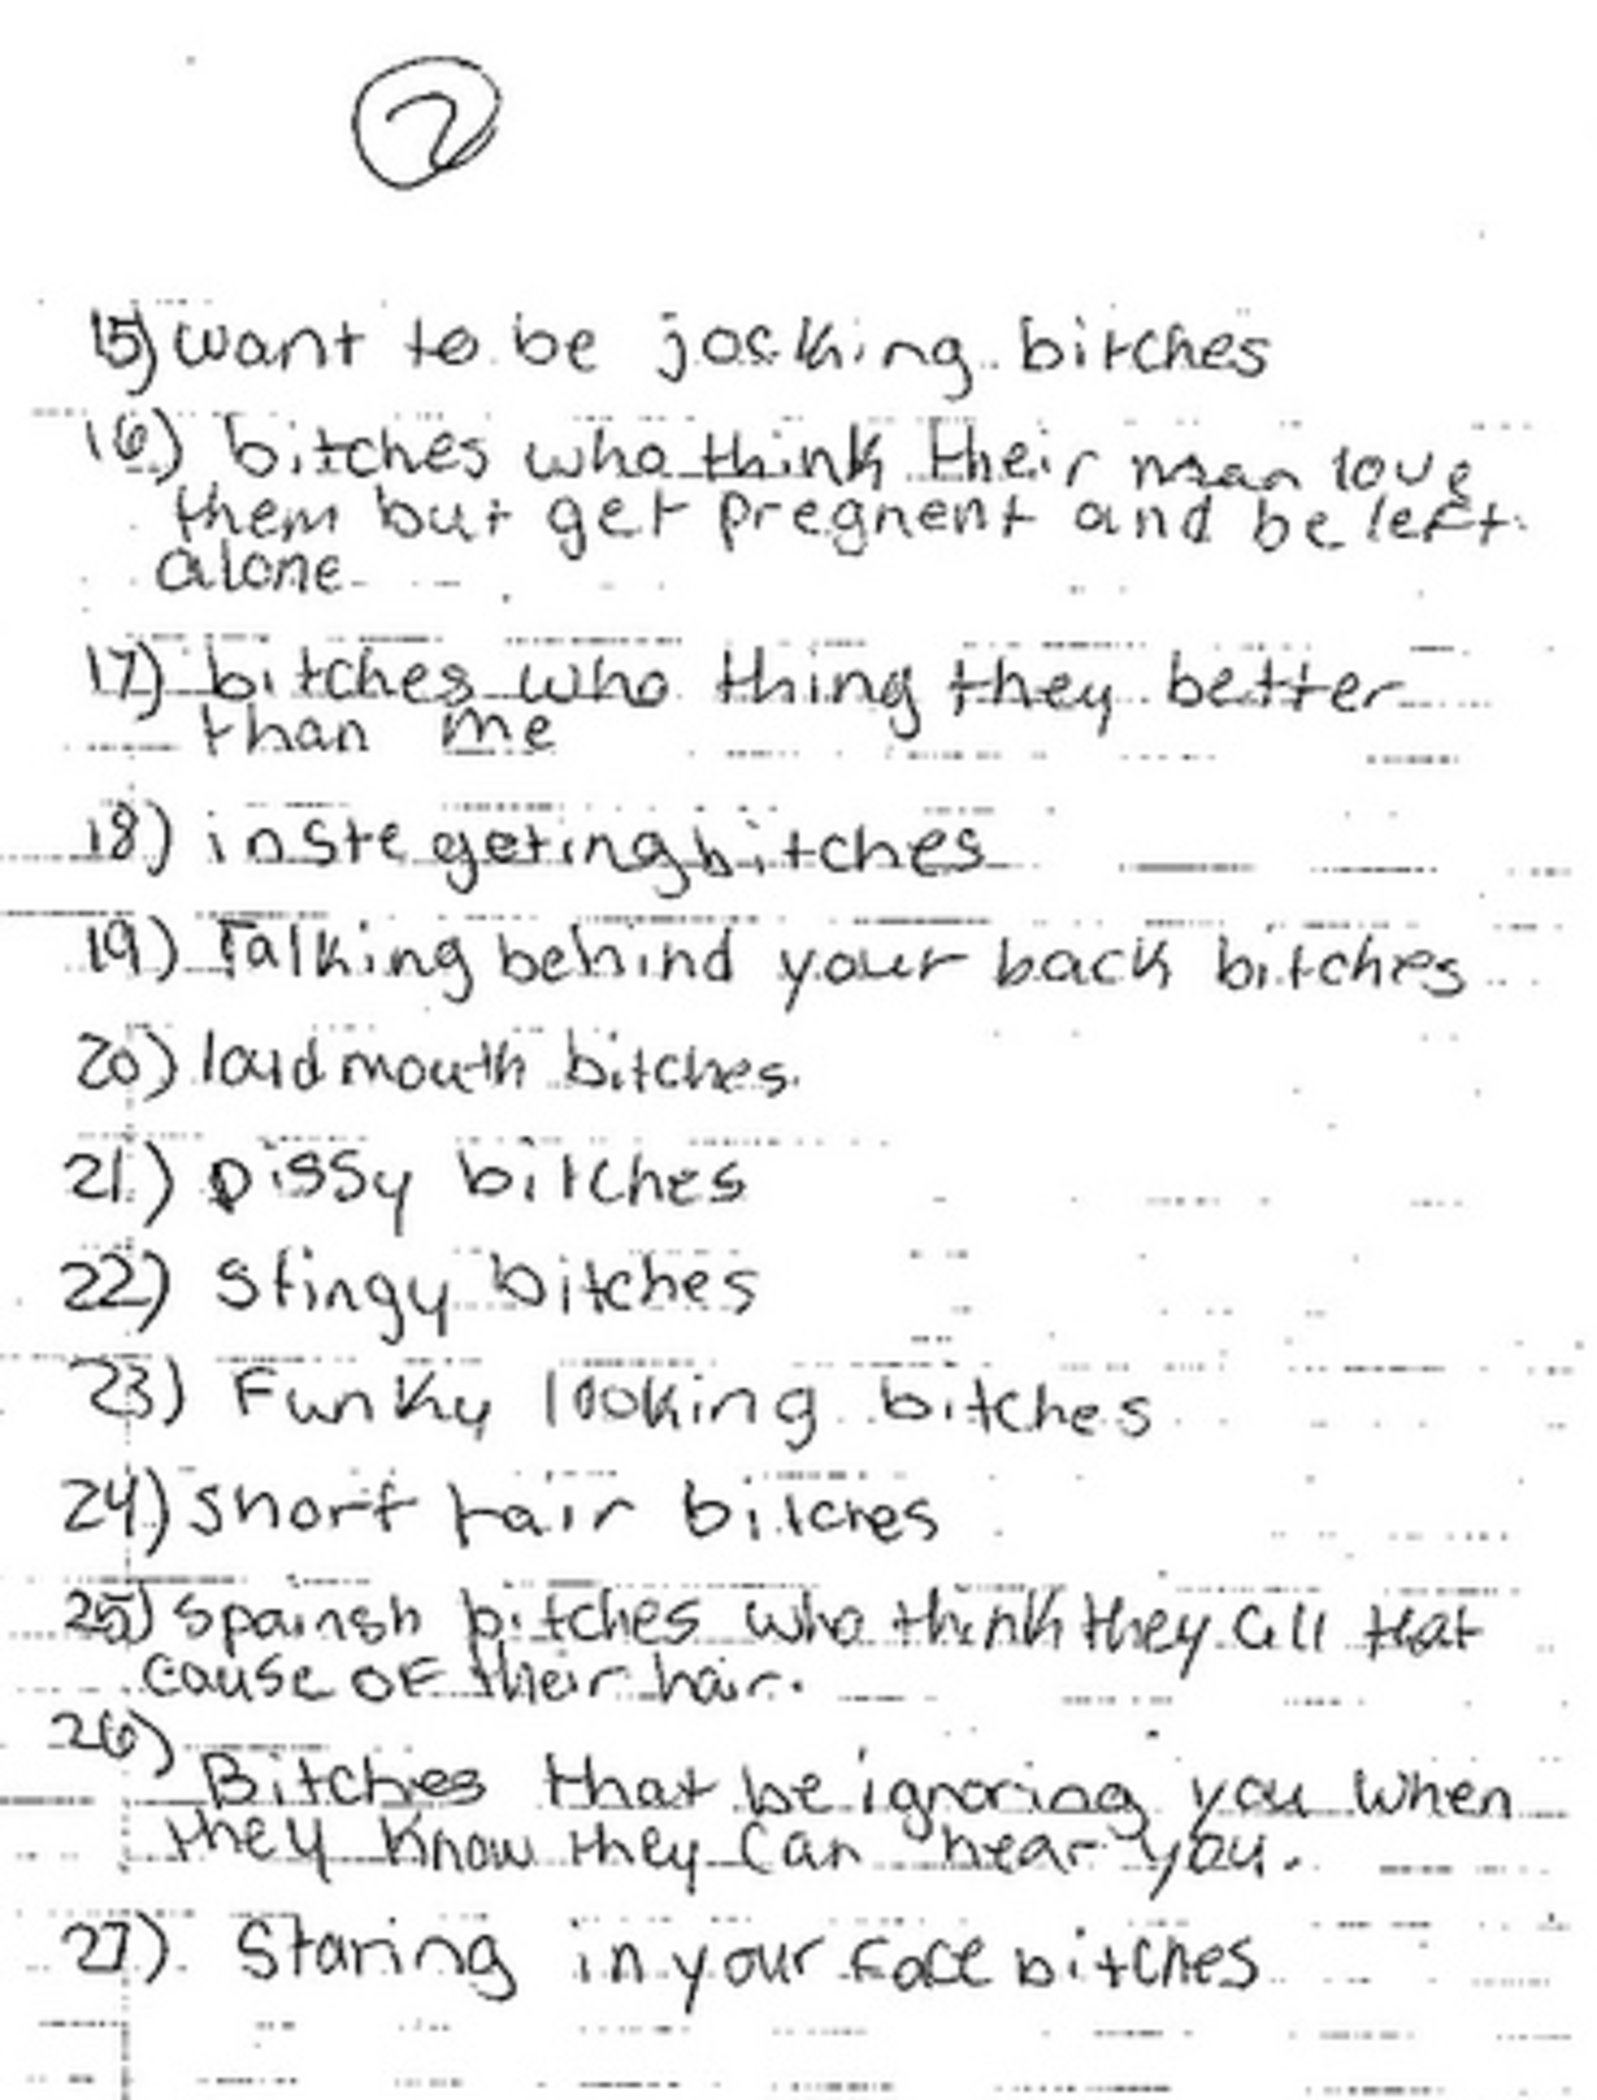 2
15) want to be jocking bitches
16) bitches who think their man love
them but get pregnent and be left
alone
17) bitches who thing they better
than me
18) inste geting bitches
19) Talking behind your back bitches
20) loud mouth bitches.
21) pissy bitches
22) stingy bitches
23) Funky looking bitches
24) short hair bitches
25) spainsh bitches who think they all that
cause of their hair.
26)
Bitches that be ignoring you when
they know they can hear you.
27) Staring in your face bitches